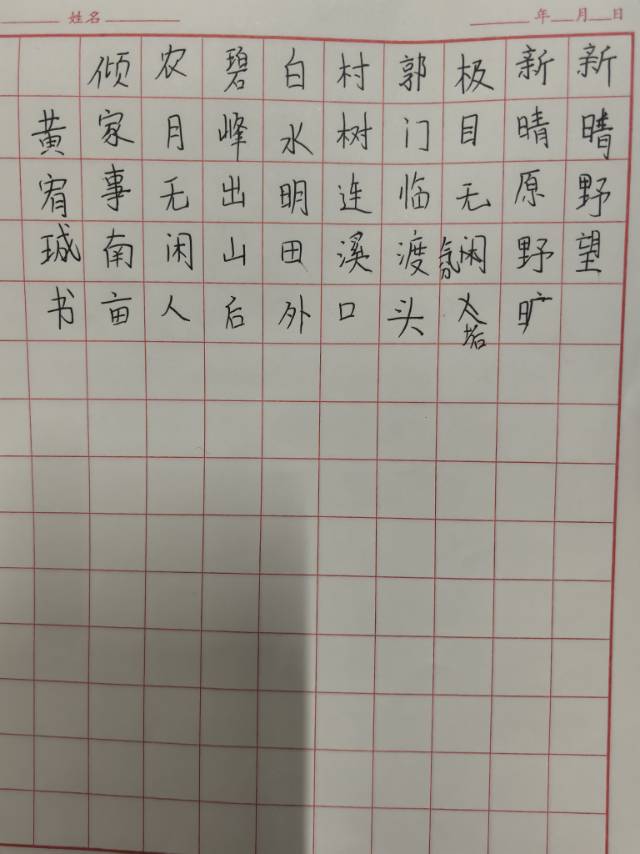 姓名 年 月 日
新晴野望
新晴原野旷
极目无氛闲
郭门临渡头
村树连溪口
白水明田外
碧峰出山后
农月无闲人
倾家事南亩
黄宥珹书